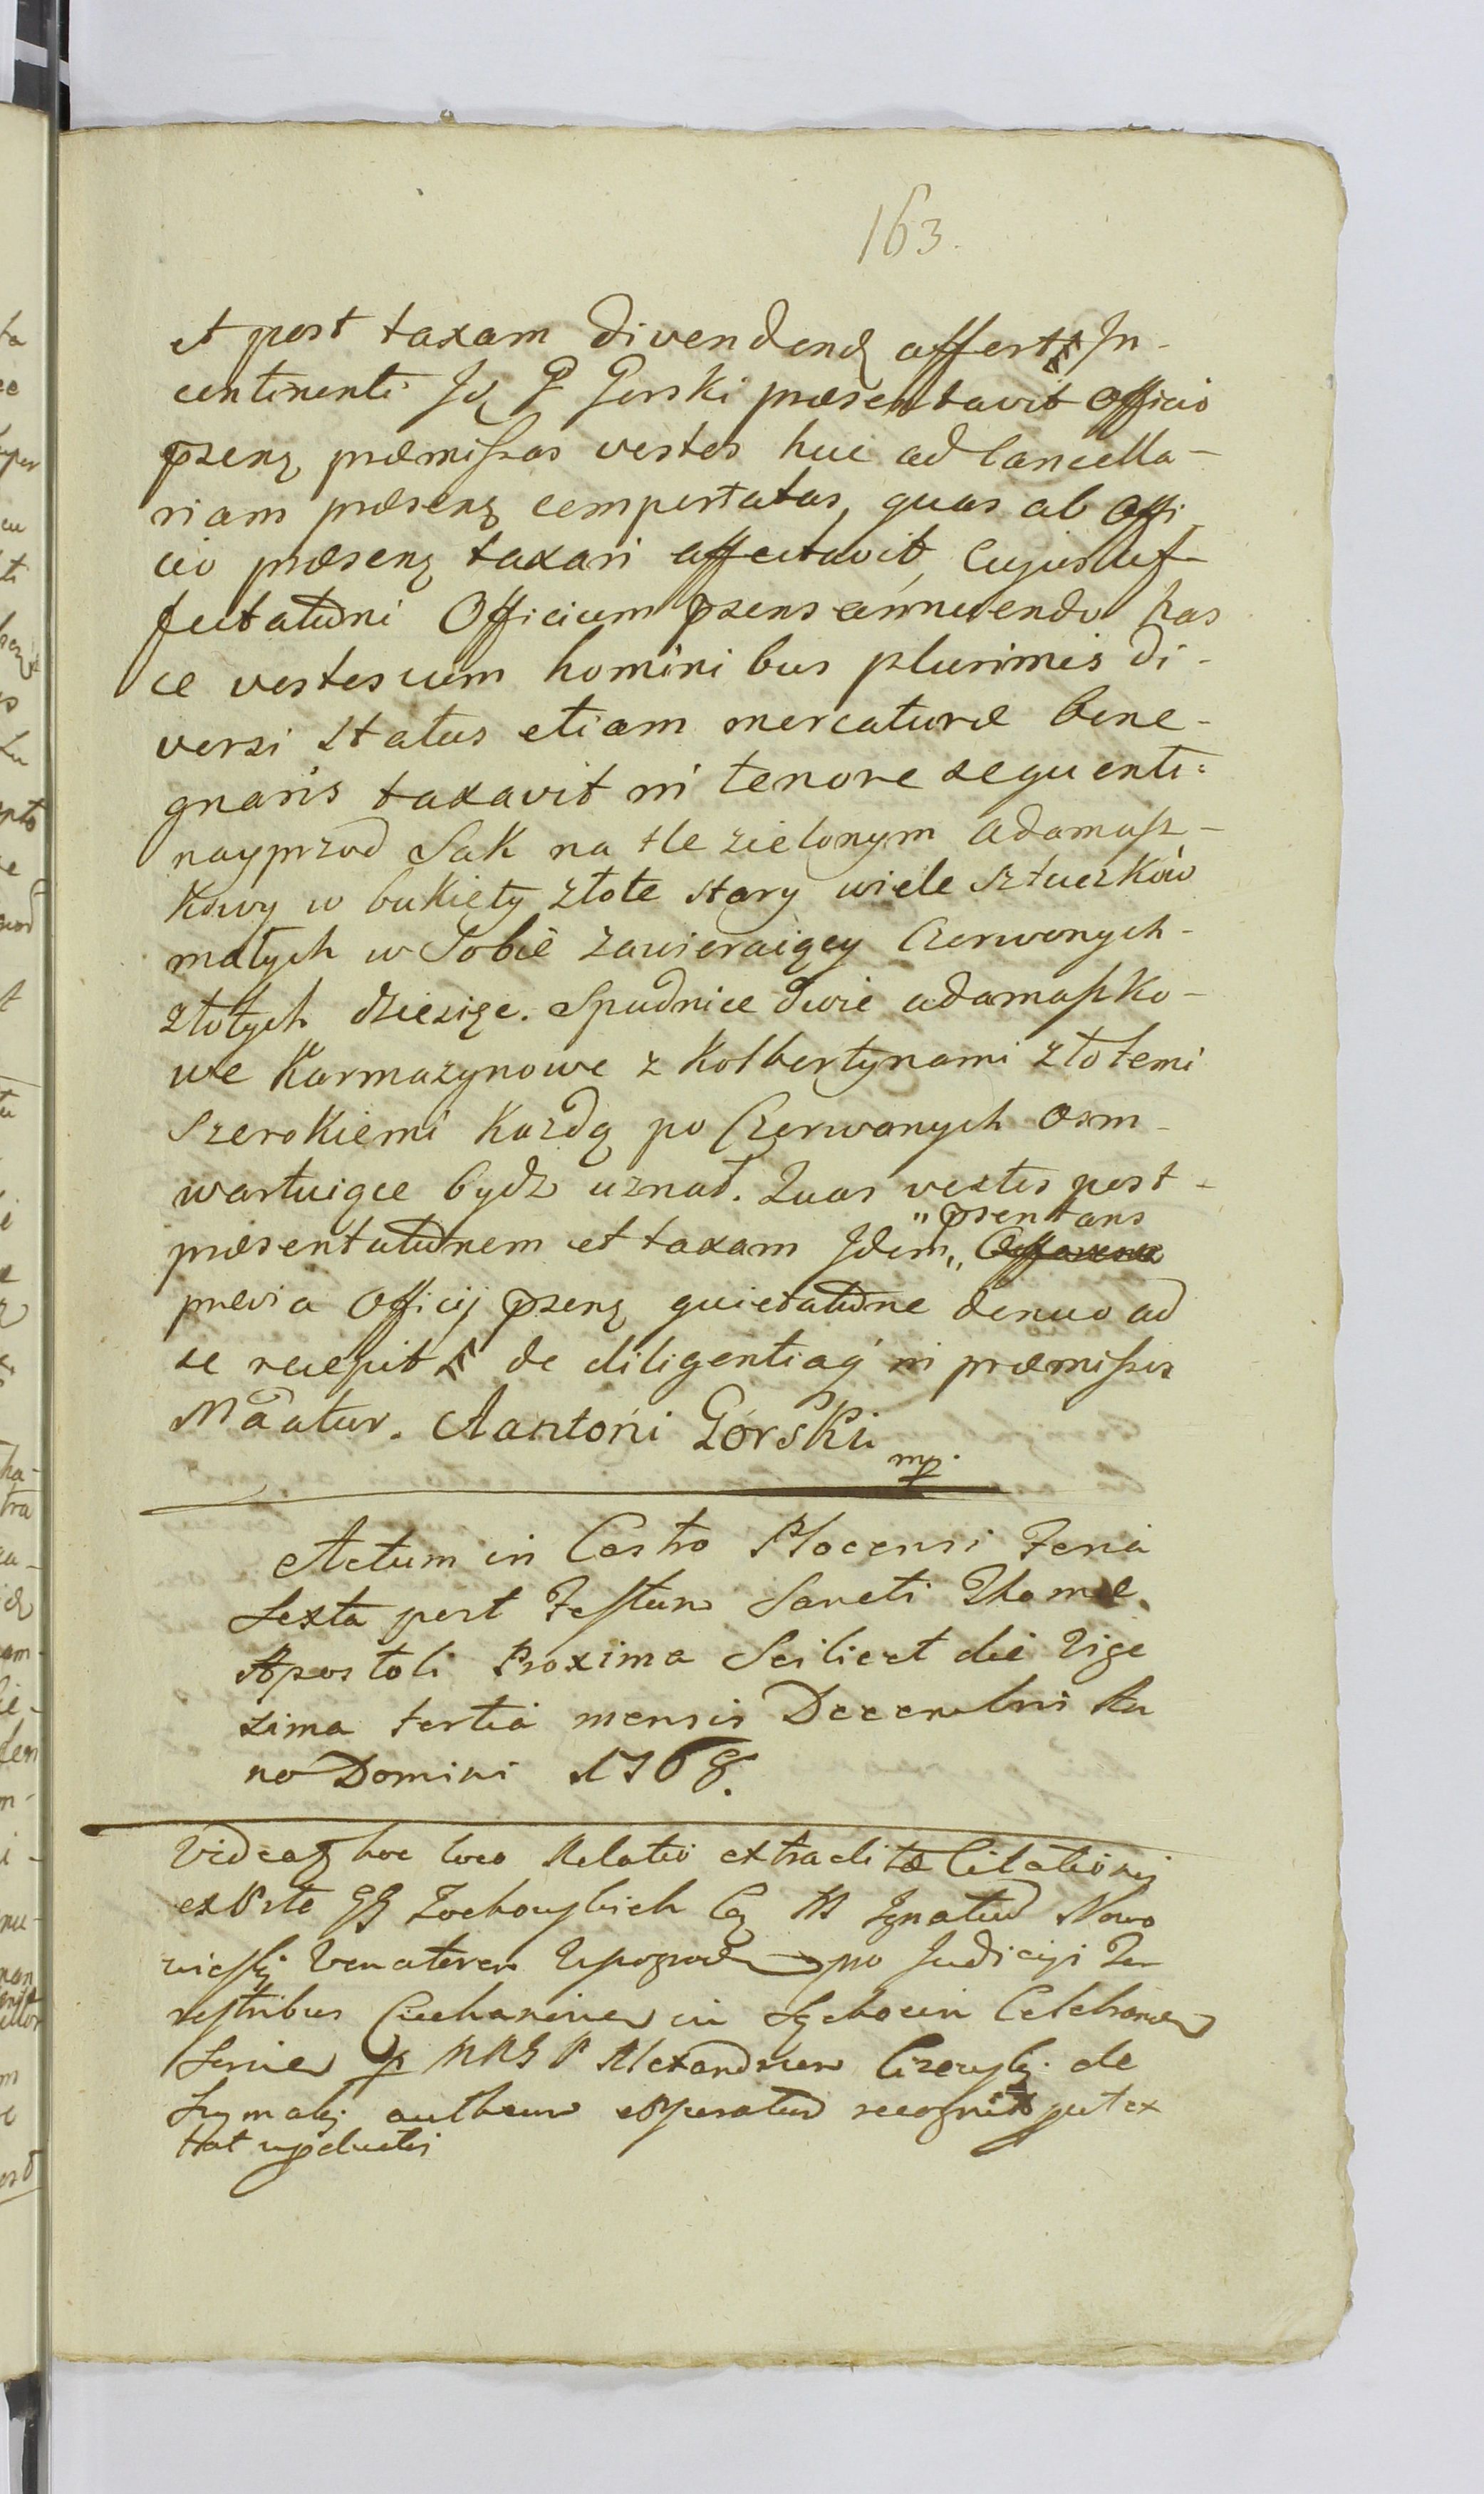 163.
et post taxam divendendȝ affert Jn-
continenti Jdȝ G Gorski præsentavit Officio
pseng præmissas vestes huc ad Cancella-
riam præseng comportatas, quas ab Offi
cio præseng taxari affectavit, Cujus Af-
fectationi Officium psens annuendo has
ce vestes cum hominibus plurimis di-
versi status etiam mercaturæ bene-
gnaris taxavit in tenore sequenti:
nayprzod Sak na tle zielonym adamasz-
kowy w bukiety złote stary wiele sztuczków
małych w Sobie zawieraiący Czerwonych-
złotych dziesięc. Spudnice dwie adamaszko-
we Karmazynowe z Kolbertynami złotemi
szerokiemi każdą po Czerwonych osm-
wartuiące bydz uznał. Quas vestes post-
præsentationem et taxam Jdem „psentans
prævia Officij pseng quietatione denuo ad
se recepit de diligentiaq in præmissis
Mãatur. Aantoni Górski mp.
Actum in Castro Plocensi Feria
Sexta post Festum Sancti Thomæ
Apostoli Proxima Scilicet die Vige
sima tertia mensis Decembris An
no Domini 1768.
Videatȝ hoc loco Relatio extraditæ Citationis
ex Pte GG Zochowskich Cȝ M Ignatium Nowo
wieski Venatorem pro Judicijs Ter
restribus Ciechanoven in
p Alexandrum de
authum recognit put ex
tat inductis